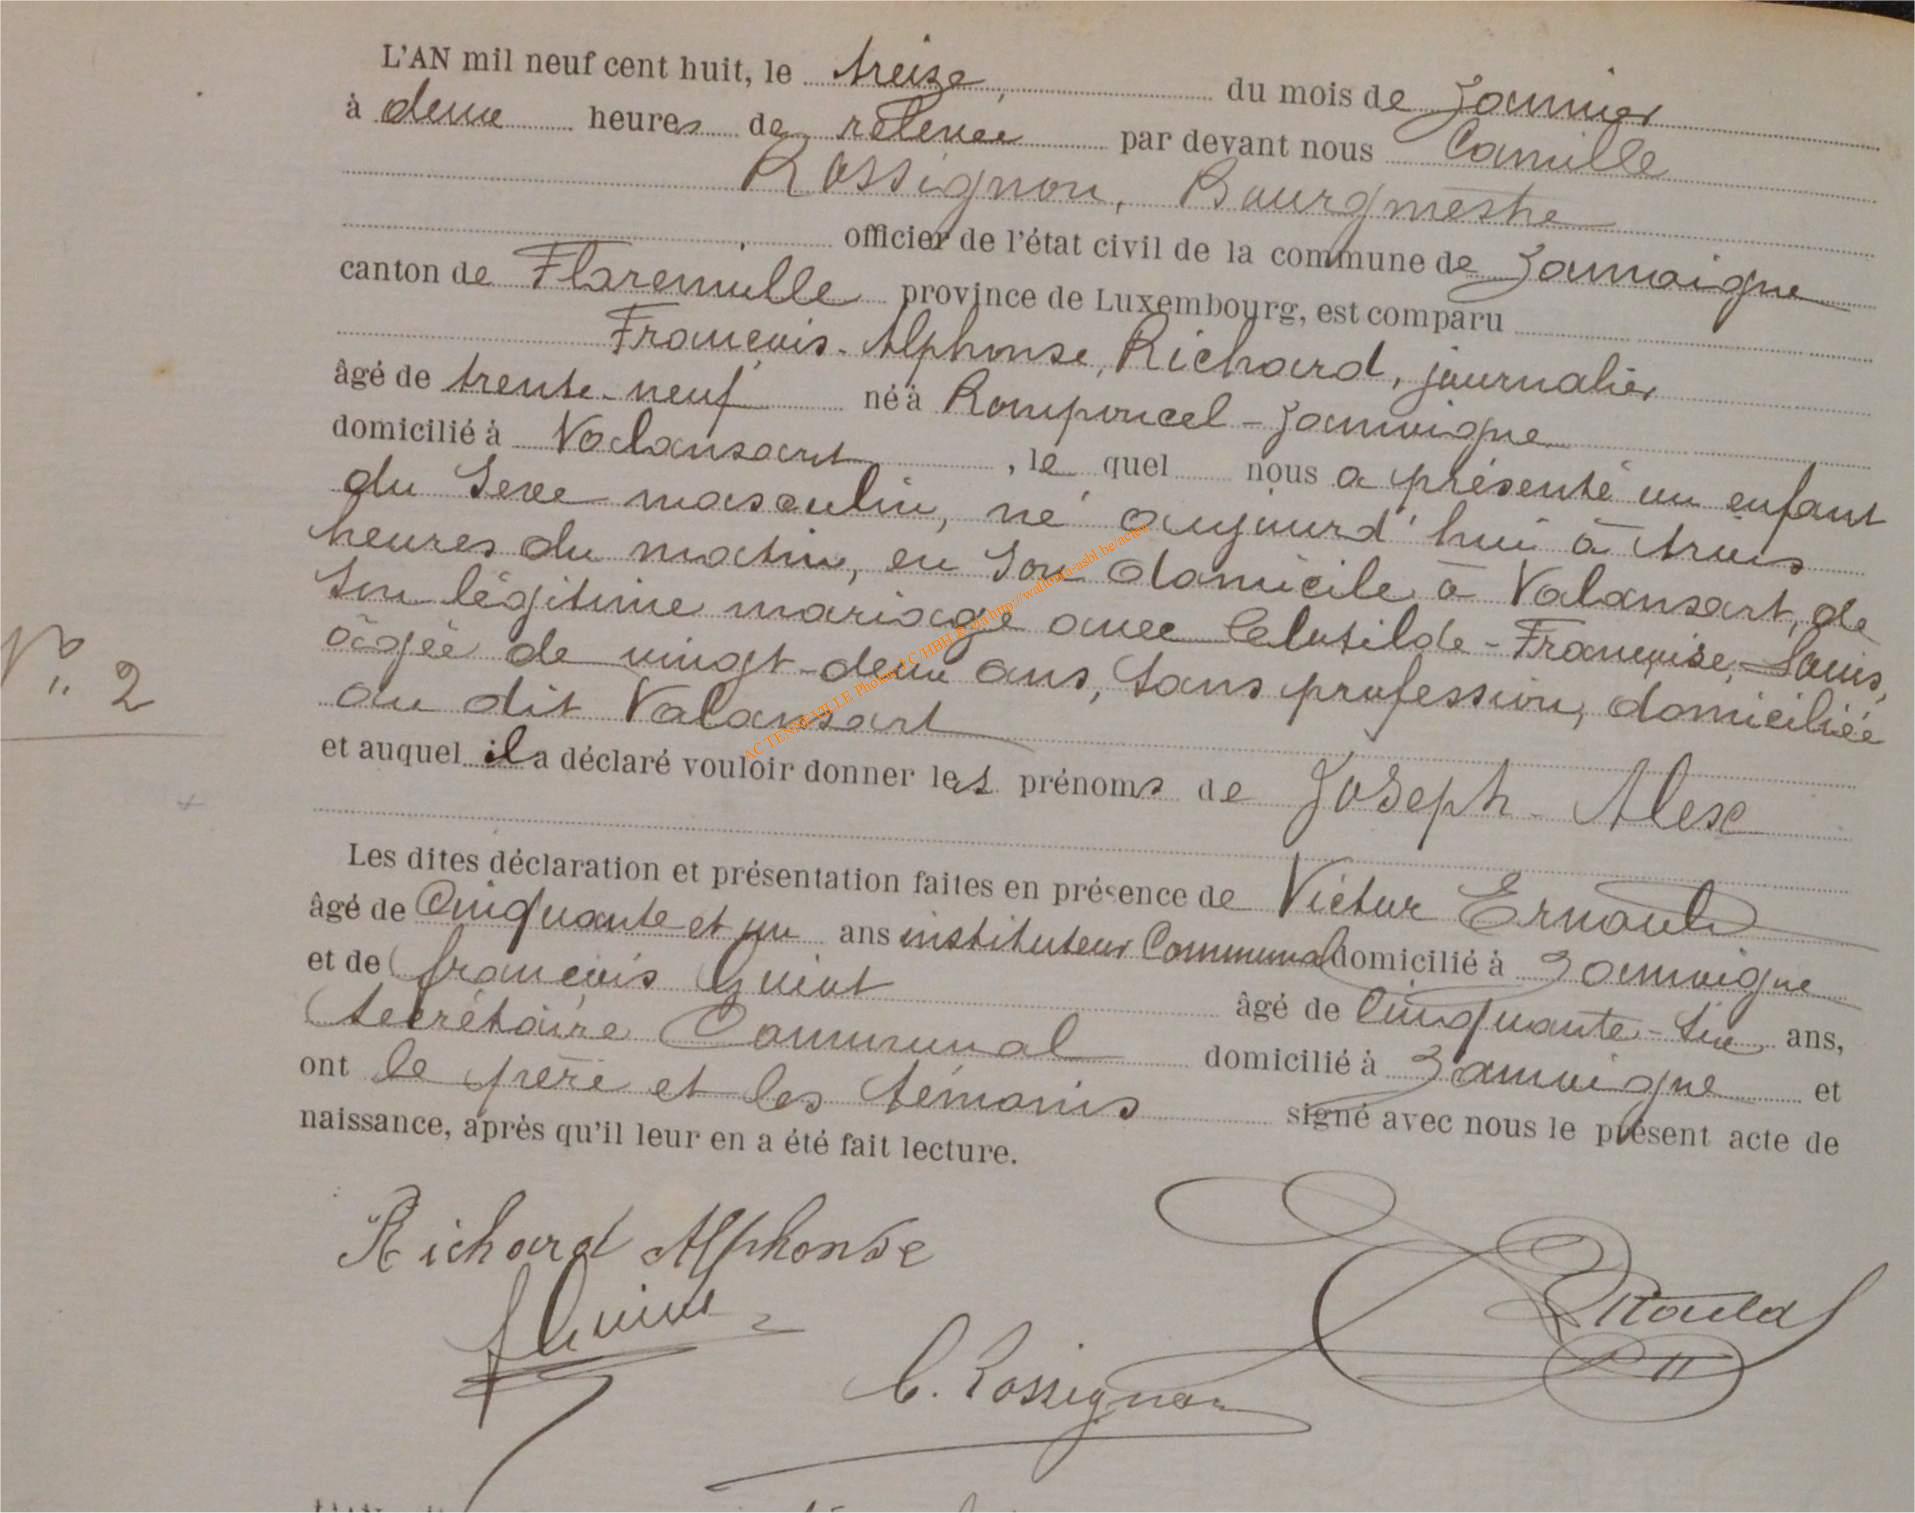 L'AN mil neuf cent huit, le treize, du mois de Janvier
à deux heures de relevée par devant nous Camille
Rossignon, Bourgmestre
officier de l'état civil de la commune de Jamoigne
canton de Florenville province de Luxembourg, est comparu
François-Alphonse, Richard, journalier
âgé de trente-neuf né à Romponcel-Jamoigne
domicilié à Valansart, le quel nous a présenté un enfant
du Sexe masculin, né aujourd'hui à trois
heures du matin, en Son domicile à Valansart, de
Son légitime mariage avec Clotilde-Françoise, Louis,
âgée de vingt-deux ans, Sans profession, domiciliée
N° 2
au dit Valansart
et auquel il a déclaré vouloir donner les prénoms de Joseph-Alex
Les dites déclaration et présentation faites en présence de Victor Ernould
âgé de Cinquante et un ans instituteur Communal domicilié à Jamoigne
et de François Guiot âgé de Cinquante-Six ans,
Secrétaire Communal domicilié à Jamoigne et
ont le père et les témoins signé avec nous le présent acte de
naissance, après qu'il leur en a été fait lecture.
Richard Alphonse
F Guiot
Ernould
C. Rossignon